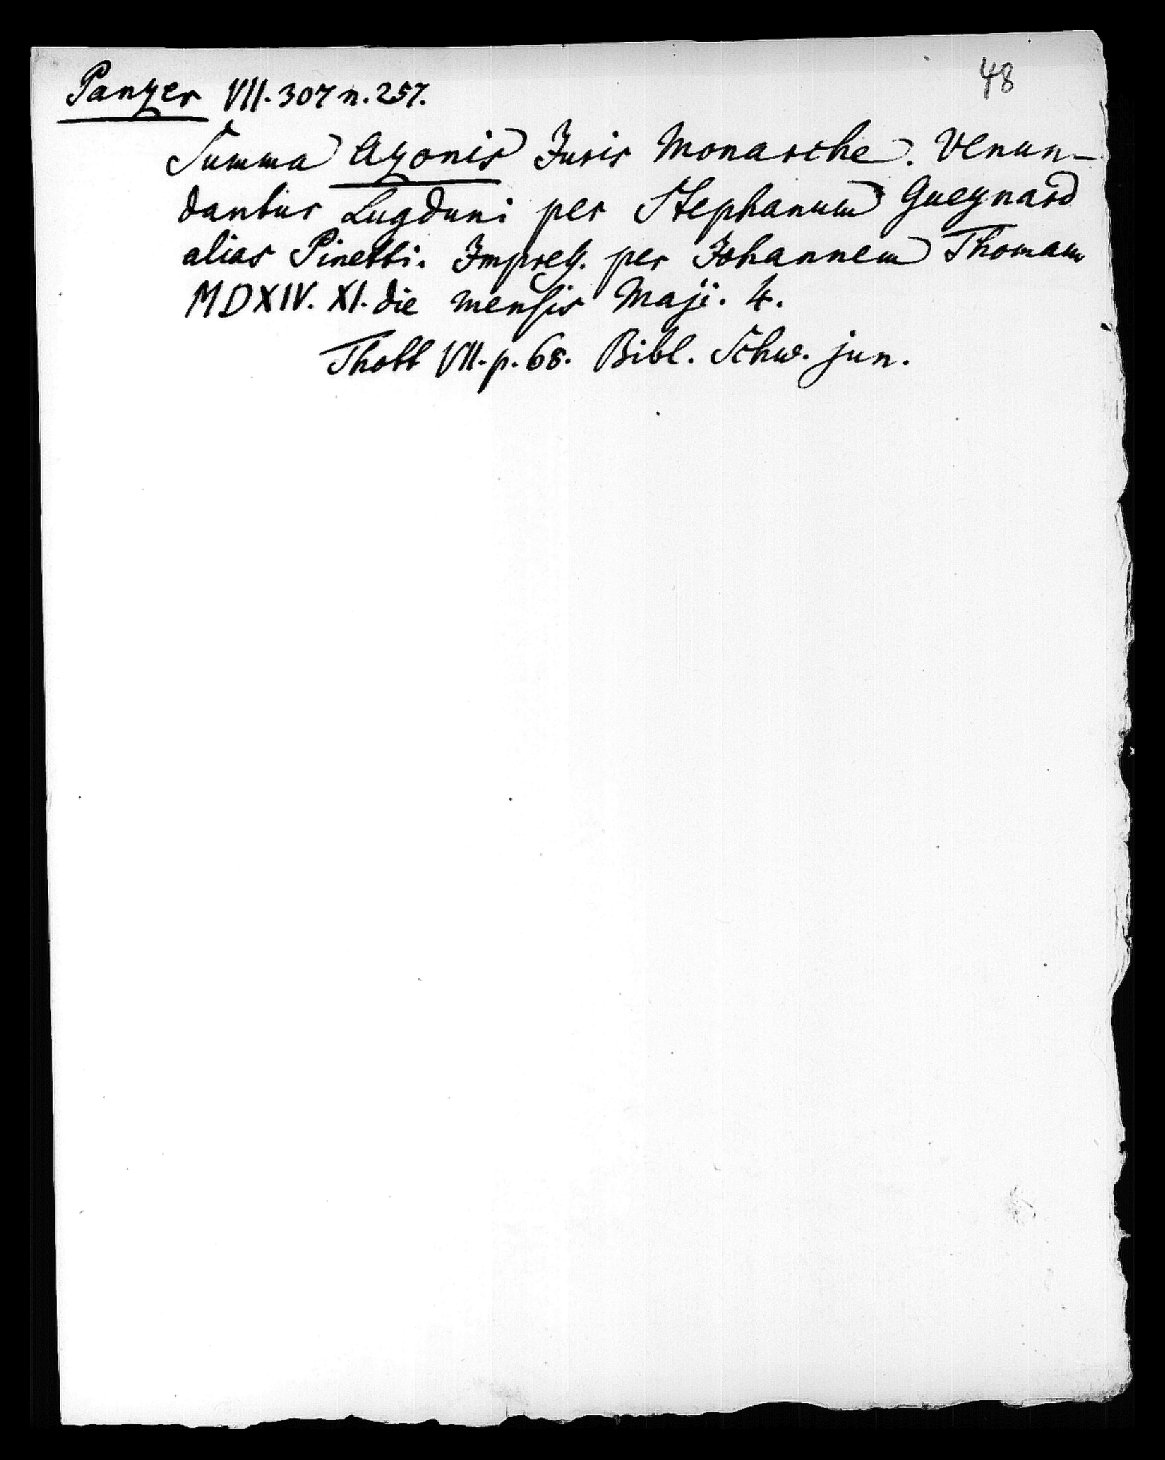 48
Panzer VII. 307 n. 257.
Summa Azonis Juris Monarche. Venun-
dantur Lugduni per Stephanum Gueynard
alias Pinetti. Impress. per Johannem Thomam
MDXIV. XI. die mensis Maji. 4.
Thott VII. p. 68. Bibl. Schw. jun.